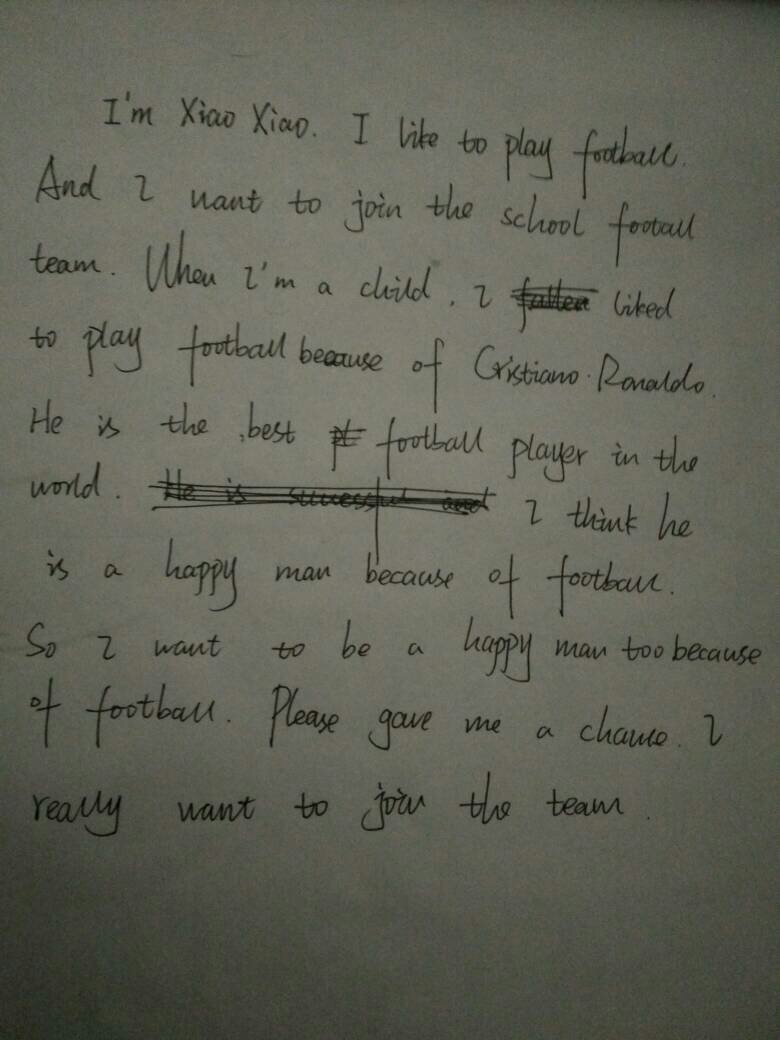 I'm Xiao Xiao. I like to play football.
And I want to join the school footall
team. When I'm a child, I fallen liked
to play football because of Cristiano·Ronaldo.
He is the best pl football player in the
world. He is successful and I think he
is a happy man because of football.
So I want to be a happy man too because
of football. Please gave me a chance. I
really want to join the team.